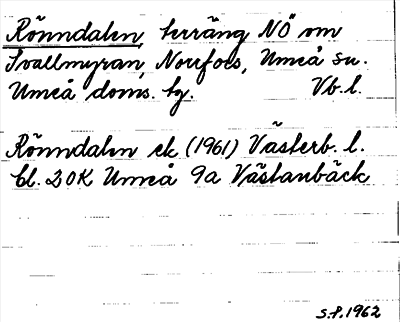 Rönndalen, terräng NÖ om
Svallmyran, Norrfors, Umeå sn.
Umeå doms. tg. Vb. l.
Rönndalen ek (1961) Västerb. l.
bl. 20K Umeå 9a Västanbäck
S.P. 1962